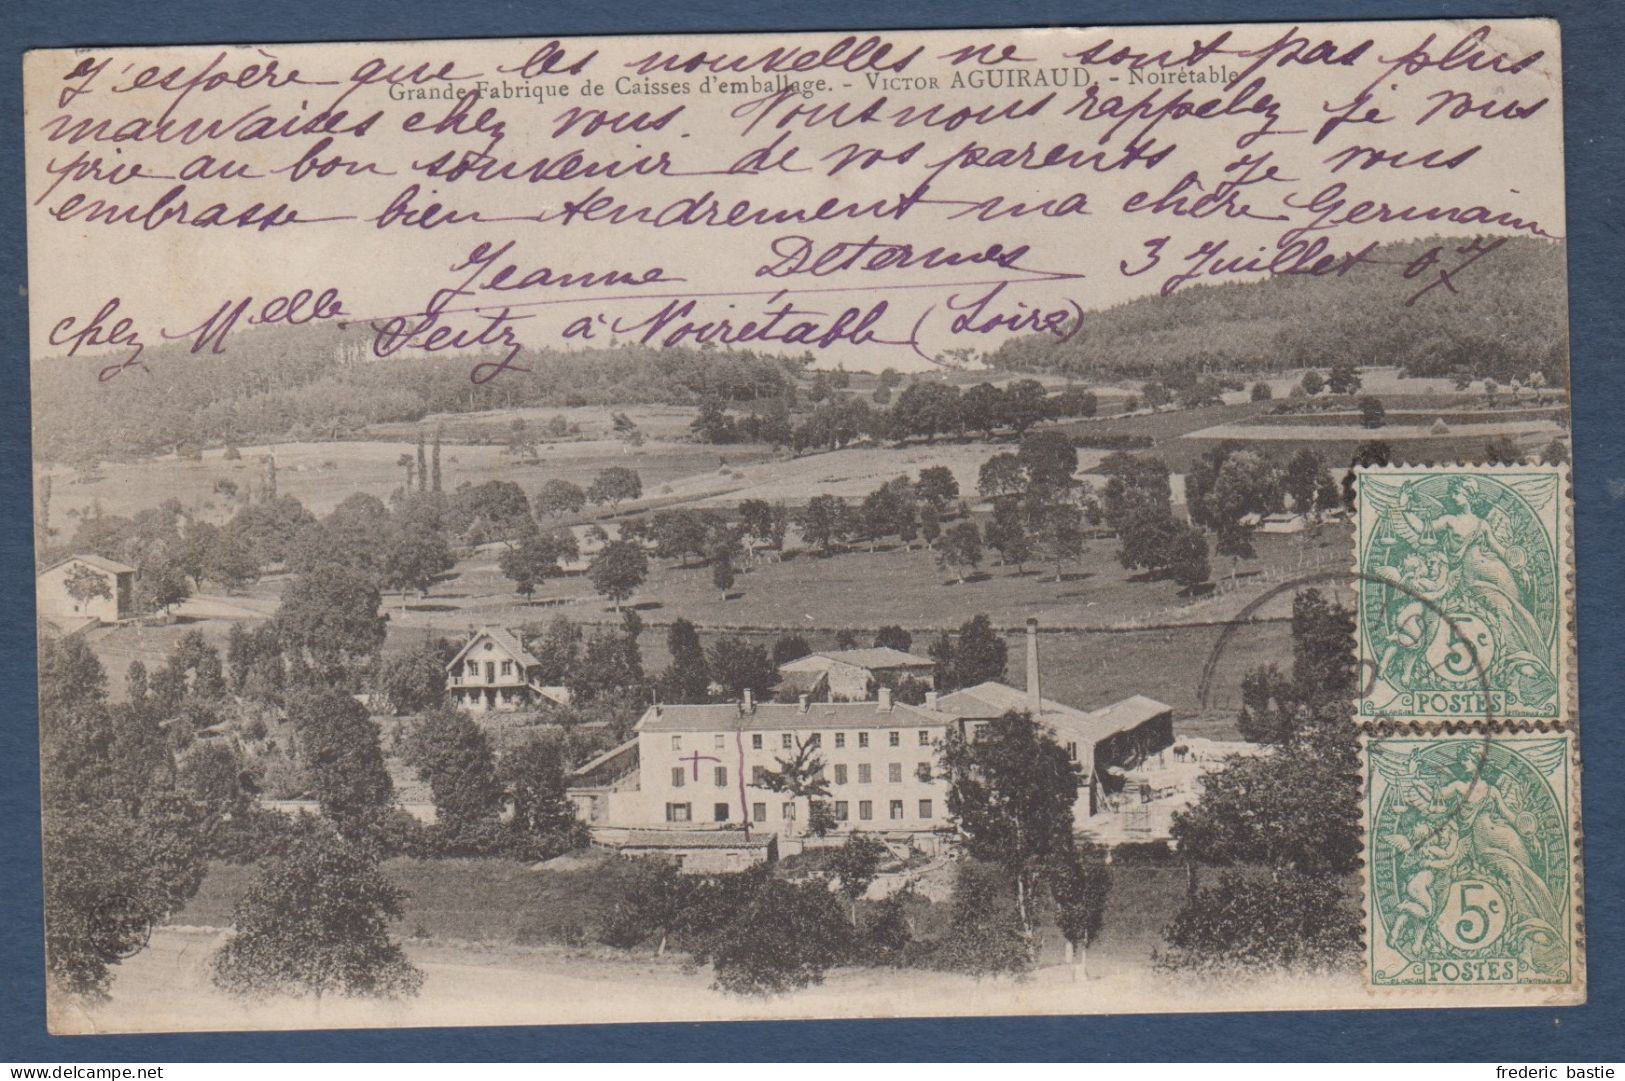 J'espère que les nouvelles ne sont pas plus
Grande Fabrique de Caisses d'emballage. - VICTOR AGUIRAUD. - Noirétable
mauvaises chez vous. Vous nous rappelez je vous
prie au bon souvenir de vos parents, je vous
embrasse bien tendrement ma chère Germaine
Jeanne Détermes 3 Juillet 07
chez Melle Seitz à Noirétable (Loire)
5c
POSTES
5c
POSTES
frederic bastie